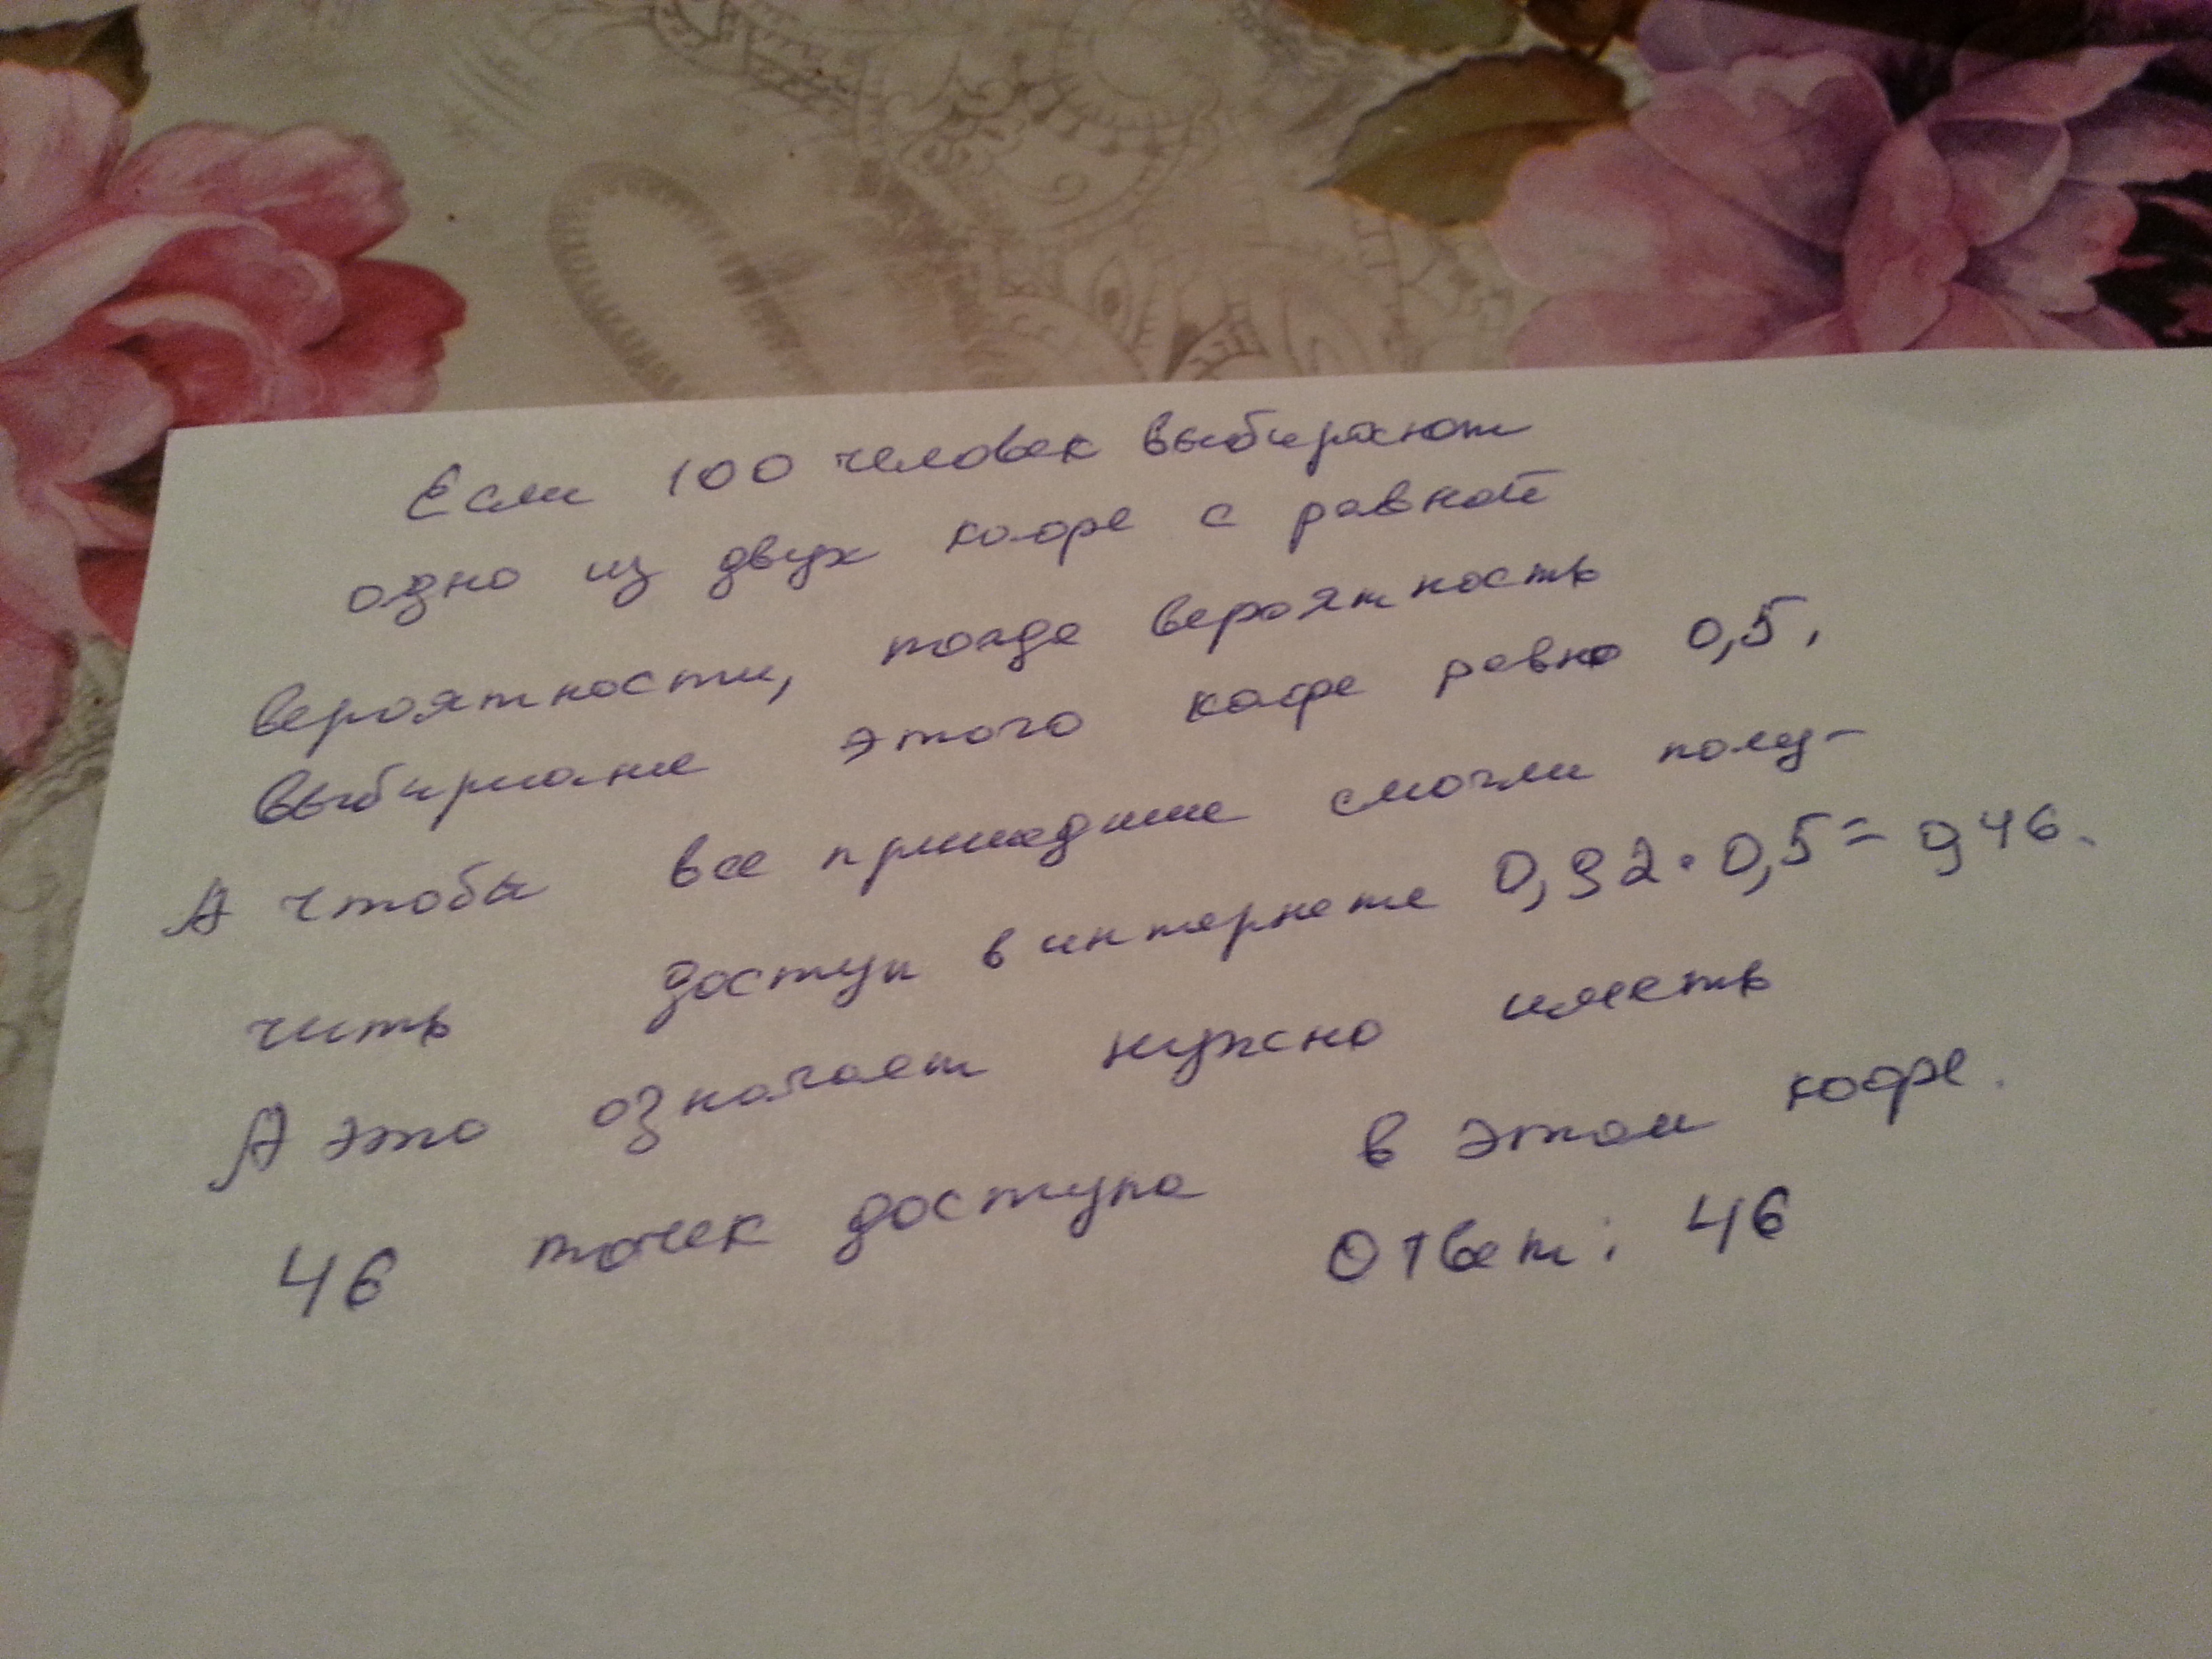 Если 100 человек выбирают
одно из двух кафе с равной
вероятности, тогда вероятность
выбирание этого кафе равно 0,5.
А чтобы все пришедшие смогли полу-
чить доступ в интернете 0,92·0,5=0,46.
А это означает нужно иметь
46 точек доступа в этом кафе.
Ответ: 46